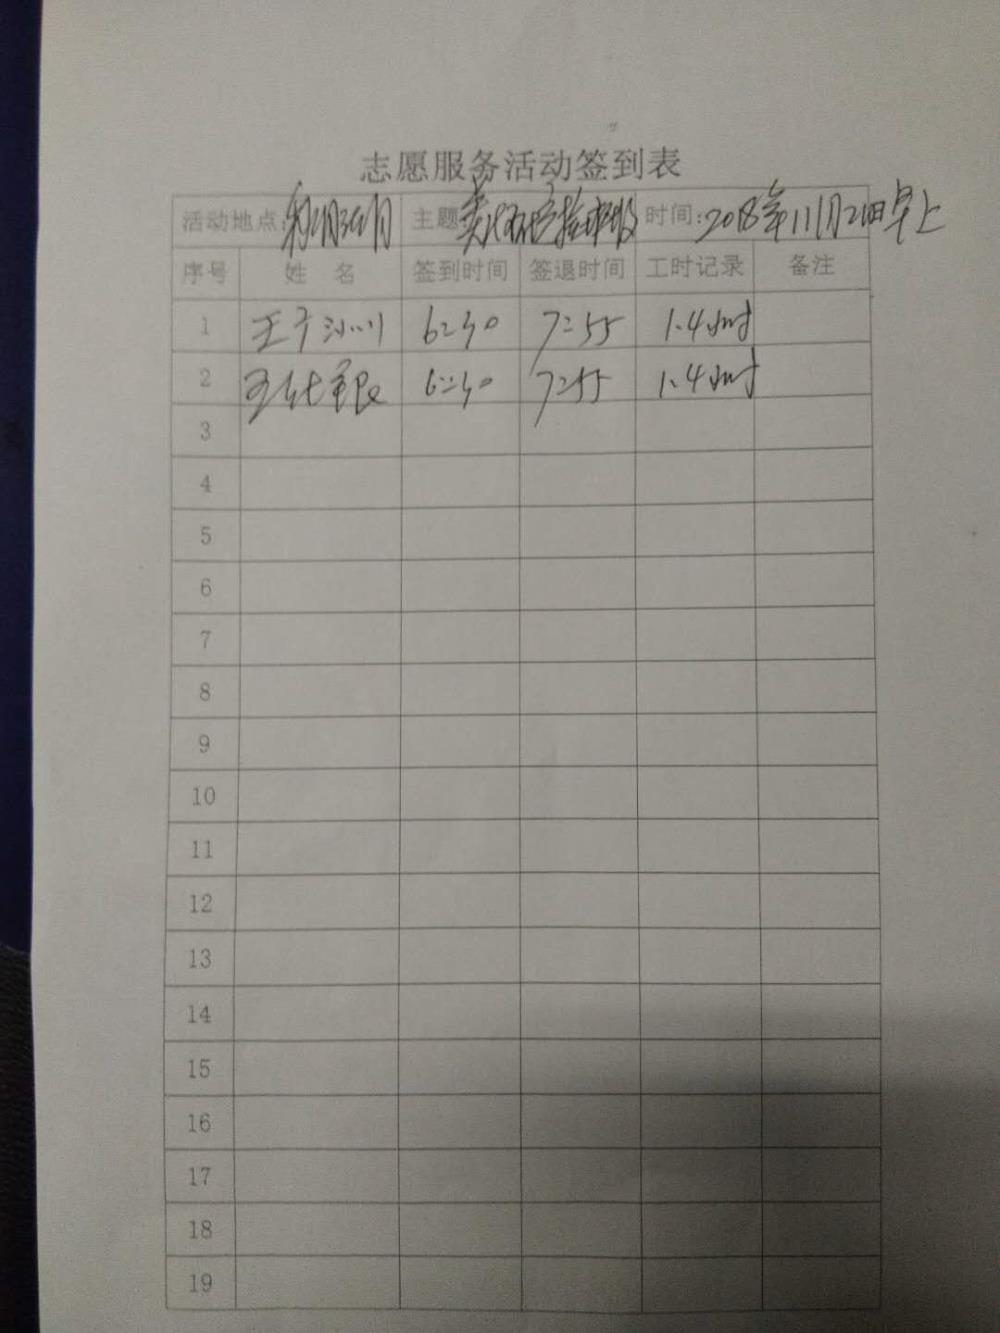 志愿服务活动签到表
活动地点: 主题 时间:2018年11月2日早上
序号 姓 名 签到时间 签退时间 工时记录 备注
1 王子 6:30 7:55 1.4小时
2 王 6:30 7:55 1.4小时
3
4
5
6
7
8
9
10
11
12
13
14
15
16
17
18
19